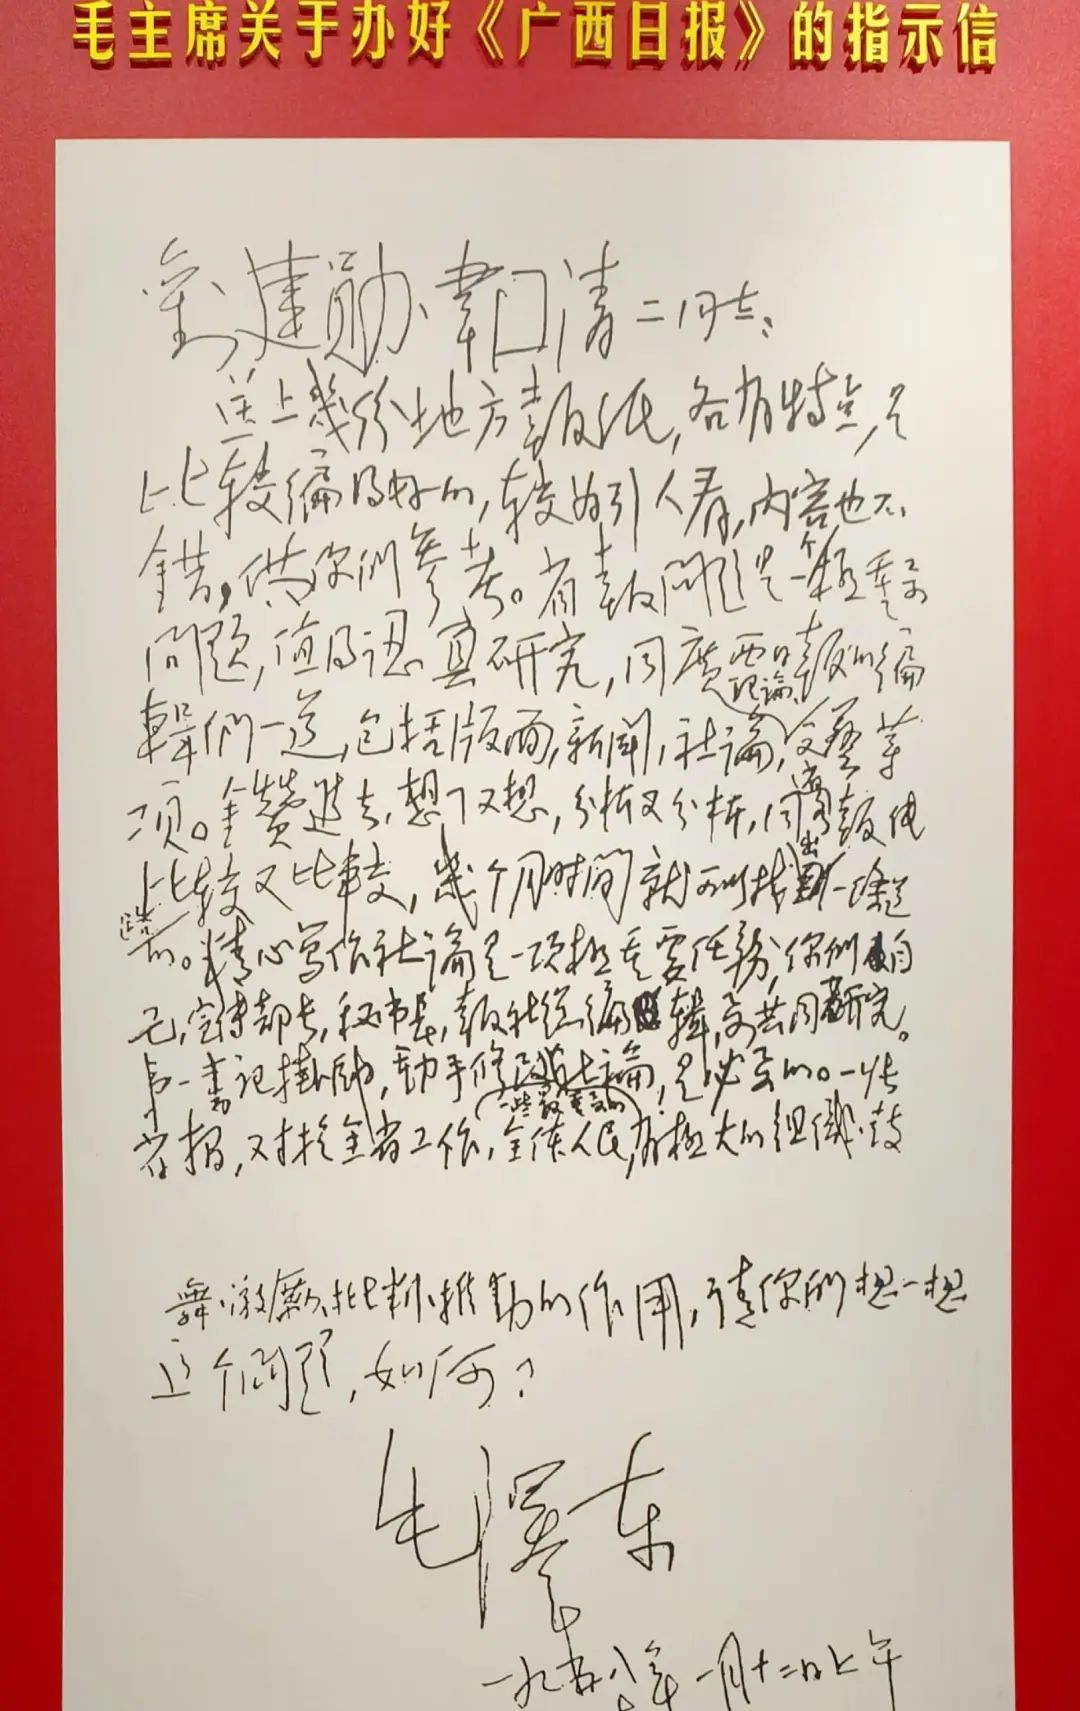 毛主席关于办好《广西日报》的指示信
劉建勋、韋囯清二同志：
送上幾份地方報紙，各有特点，是
比較編得好的，較为引人看，内容也不
錯，供你们参考。省報问题是一个極重要
问题，值得认真研究，同廣西日報的編
輯們一道，包括版面，新聞，社論，理論，文藝等
项。鑽進去，想了又想，分析又分析，同各省報紙
比較又比較，幾个月时间就可以找出一条道路
来的。精心写作社論是一项極重要任務，你们自
己，宣传部长，秘书长，報社総編輯，要共同研究。
第一書记掛帥，動手修改一些最重要的社論，是必要的。一张
省报，对於全省工作，全体人民，有極大的组織、鼓
舞、激厲、批判、推動的作用，请你们想一想
这个问题，如何？
毛澤东
一九五八年一月十二日上午